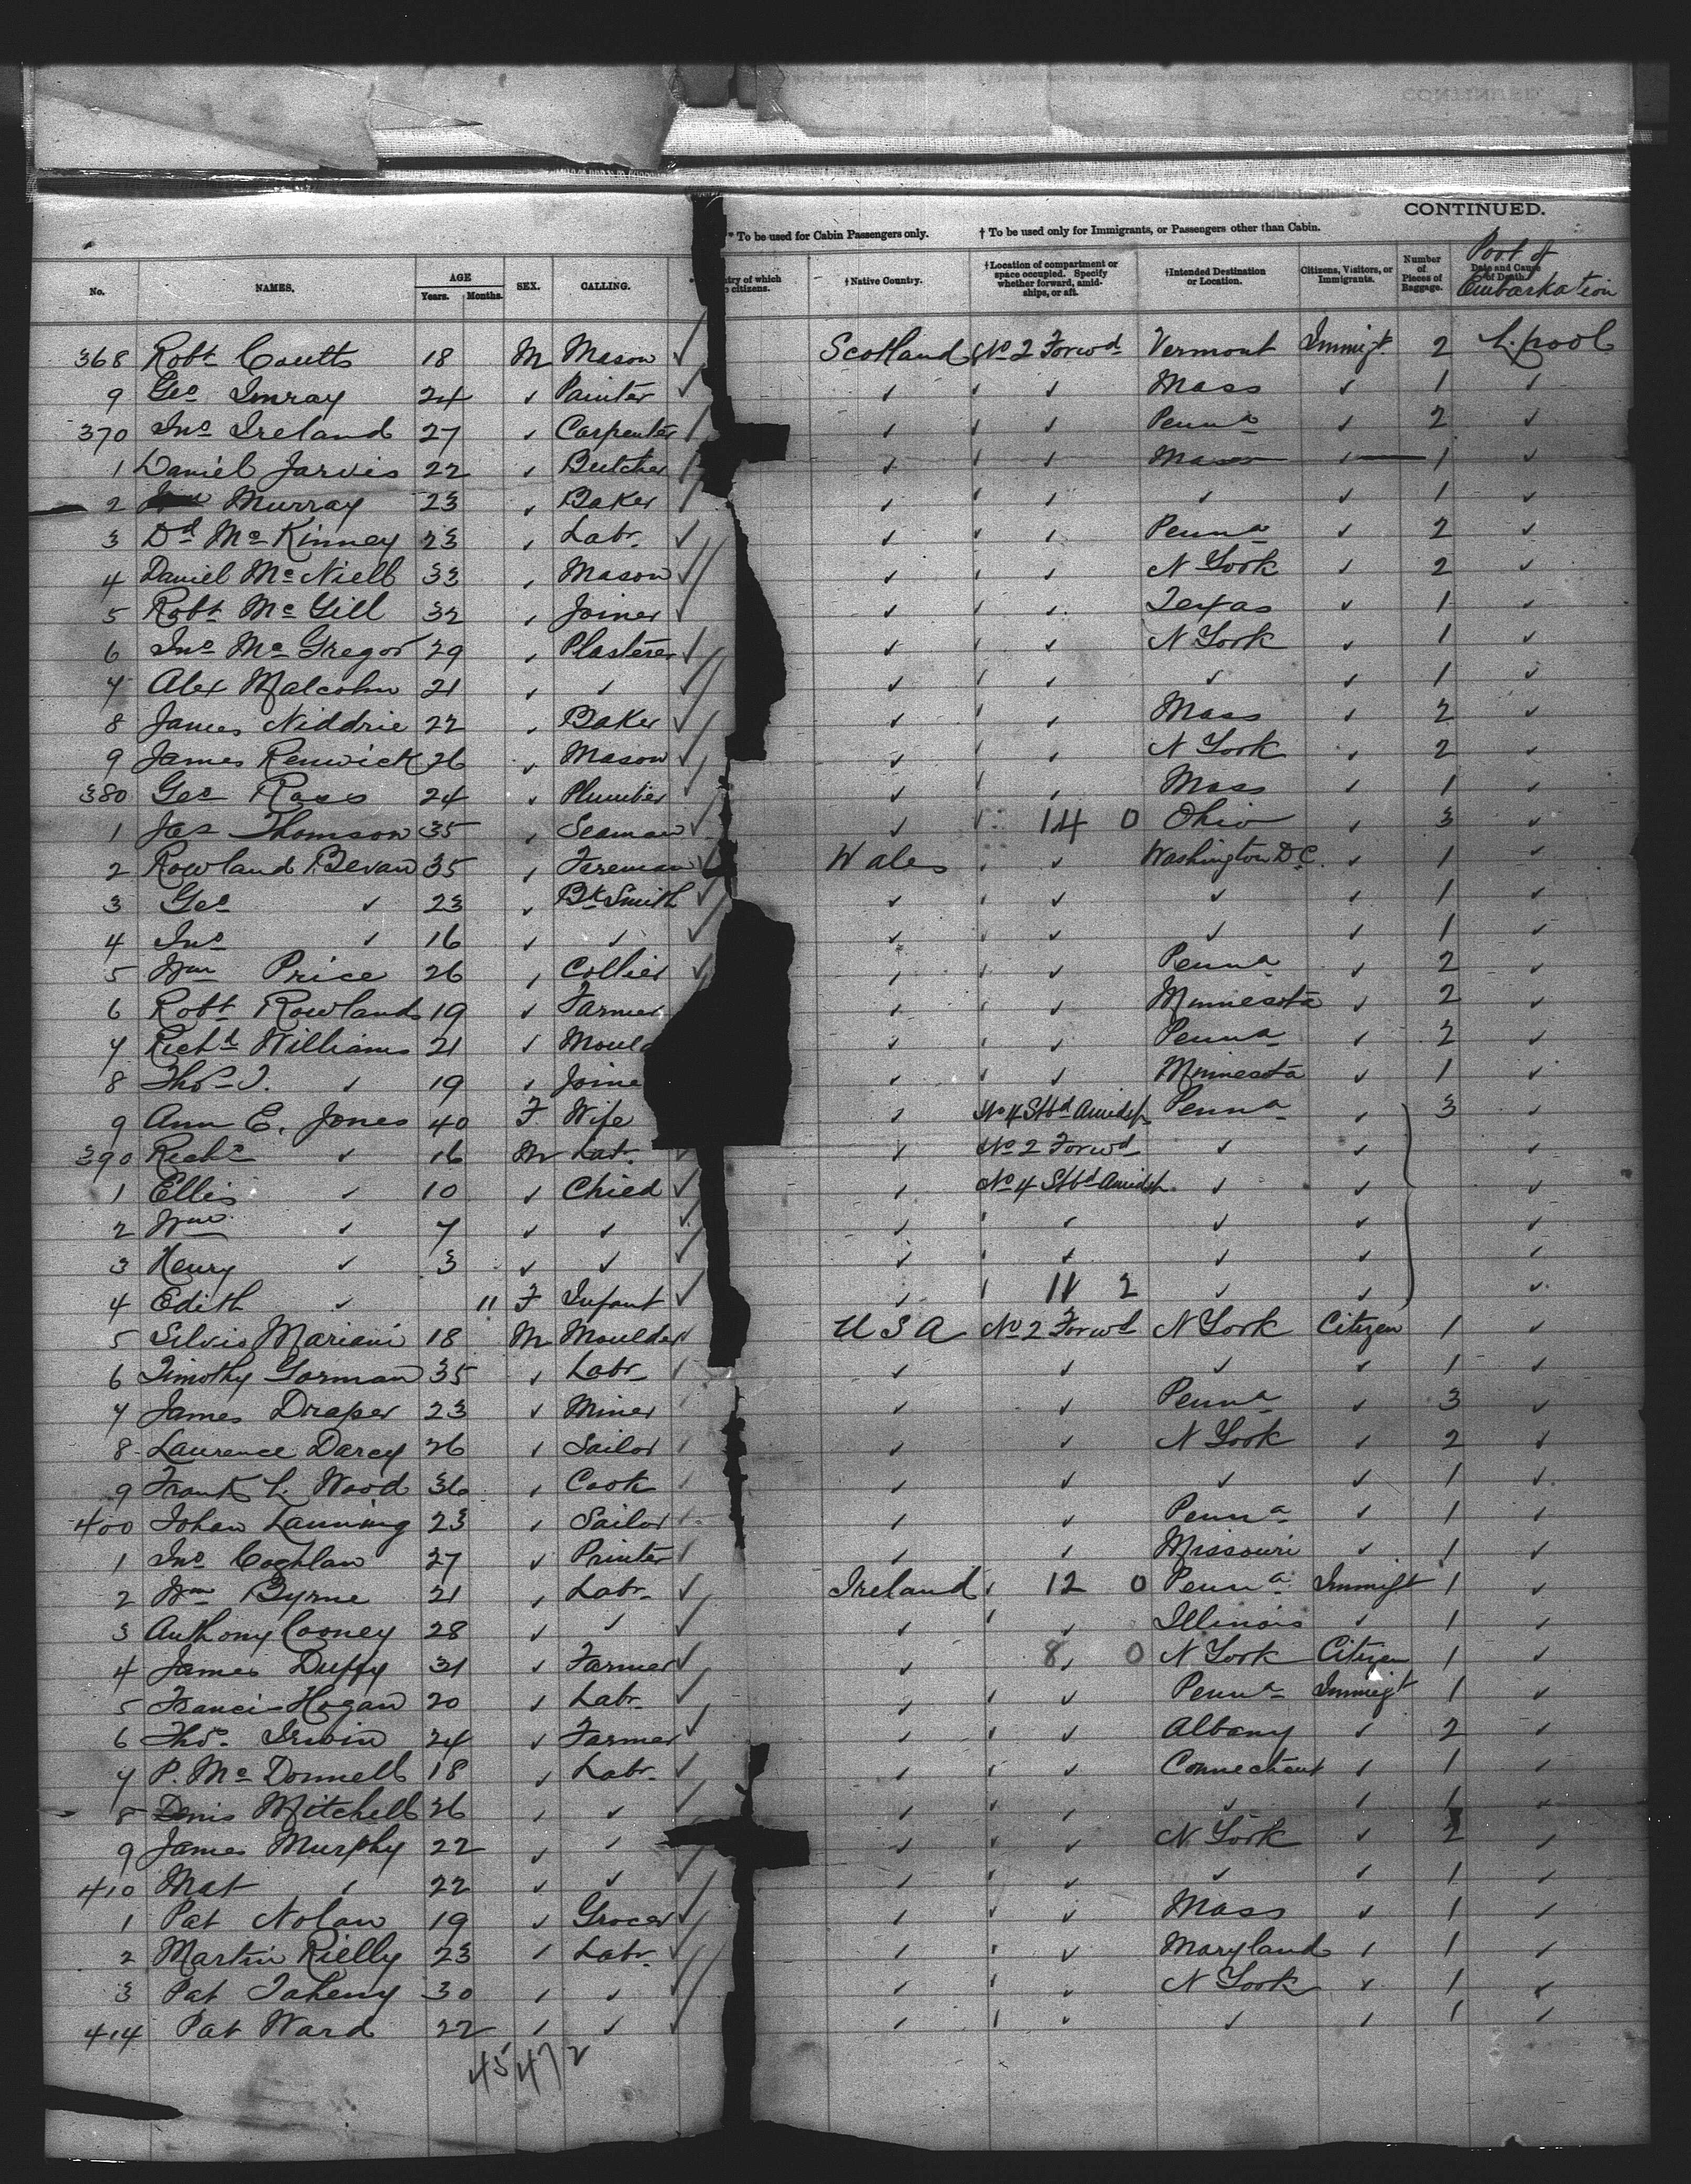 CONTINUED.
* To be used for Cabin Passengers only. † To be used only for Immigrants, or Passengers other than Cabin.
No. NAMES. AGE Years. Months. SEX. CALLING. ntry of which citizens. † Native Country. † Location of compartment or space occupied. Specify whether forward, amidships, or aft. † Intended Destination or Location. Citizens, Visitors, or Immigrants. Number of Pieces of Baggage. Date and Cause of Death. Port of Embarkation
368 Robt Coutts 18 M Mason ✓ Scotland No 2 Forwd Vermont Immigt. 2 L.pool
9 Geo Imray 24 ✓ Painter ✓ ✓ ✓ ✓ Mass ✓ 1 ✓
370 Jno Ireland 27 ✓ Carpenter ✓ ✓ ✓ Penna ✓ 2 ✓
1 Daniel Jarvis 22 ✓ Butcher ✓ ✓ ✓ Mass ✓ 1 ✓
2 Murray 23 ✓ Baker ✓ ✓ ✓ ✓ ✓ 1 ✓
3 Dd McKinney 23 ✓ Labr. ✓ ✓ ✓ ✓ Penna ✓ 2 ✓
4 Daniel McNiell 33 ✓ Mason ✓ ✓ ✓ ✓ N York ✓ 2 ✓
5 Robt McGill 32 ✓ Joiner ✓ ✓ ✓ ✓ Texas ✓ 1 ✓
6 Jno McGregor 29 ✓ Plasterer ✓ ✓ ✓ ✓ N York ✓ 1 ✓
7 Alex Malcolm 21 ✓ ✓ ✓ ✓ ✓ ✓ ✓ ✓ 1 ✓
8 James Niddrie 22 ✓ Baker ✓ ✓ ✓ ✓ Mass ✓ 2 ✓
9 James Renwick 26 ✓ Mason ✓ ✓ ✓ ✓ N York ✓ 2 ✓
380 Geo Ross 24 ✓ Plumber ✓ ✓ ✓ ✓ Mass ✓ 1 ✓
1 Jas Thomson 35 ✓ Seaman ✓ ✓ ✓ 14 0 Ohio ✓ 3 ✓
2 Rowland Bevan 35 ✓ Fireman ✓ Wales ✓ ✓ Washington D.C. ✓ 1 ✓
3 Geo ✓ 23 ✓ Bk Smith ✓ ✓ ✓ ✓ ✓ ✓ 1 ✓
4 Jno ✓ 16 ✓ ✓ ✓ ✓ ✓ ✓ ✓ ✓ 1 ✓
5 Wm Price 26 ✓ Collier ✓ ✓ ✓ ✓ Penna ✓ 2 ✓
6 Robt Rowlands 19 ✓ Farmer ✓ ✓ ✓ Minnesota ✓ 2 ✓
7 Richd Williams 21 ✓ Mould ✓ ✓ ✓ Penna ✓ 2 ✓
8 Thos J. ✓ 19 ✓ Joine ✓ ✓ ✓ Minnesota ✓ 1 ✓
9 Ann E. Jones 40 F Wife ✓ No 4 Stbd Amidsh Penna ✓ 3 ✓
390 Richd ✓ 16 M Labr. ✓ ✓ No 2 Forwd ✓ ✓
1 Ellis ✓ 10 ✓ Chied ✓ ✓ No 4 Stbd Amidsh. ✓ ✓ ✓
2 Wm ✓ 7 ✓ ✓ ✓ ✓ ✓ ✓ ✓ ✓ ✓
3 Henry ✓ 3 ✓ ✓ ✓ ✓ ✓ ✓ ✓ ✓ ✓
4 Edith ✓ 11 F Infant ✓ ✓ ✓ 11 2 ✓ ✓ ✓
5 Silvio Mariani 18 M Moulder ✓ U S A No 2 Forwd N York Citizen 1 ✓
6 Timothy Gorman 35 ✓ Labr ✓ ✓ ✓ ✓ ✓ 1 ✓
7 James Draper 23 ✓ Miner ✓ ✓ ✓ Penna ✓ 3 ✓
8 Laurence Darcy 26 ✓ Sailor ✓ ✓ ✓ N York ✓ 2 ✓
9 Frank L. Wood 36 ✓ Cook ✓ ✓ ✓ ✓ ✓ 1 ✓
400 Johan Lanning 23 ✓ Sailor ✓ ✓ ✓ Penna ✓ 1 ✓
1 Jno Coghlan 27 ✓ Printer ✓ ✓ ✓ Missouri ✓ 1 ✓
2 Wm Byrne 21 ✓ Labr. ✓ Ireland ✓ 12 0 Penna Immigt 1 ✓
3 Anthony Cooney 28 ✓ ✓ ✓ ✓ ✓ ✓ Illinois ✓ 1 ✓
4 James Duffy 31 ✓ Farmer ✓ ✓ 8 0 N York Citizen 1 ✓
5 Francis Hogan 20 ✓ Labr. ✓ ✓ ✓ ✓ Penna Immigt 1 ✓
6 Thos. Irwin 24 ✓ Farmer ✓ ✓ ✓ ✓ Albany ✓ 2 ✓
7 P. McDonnell 18 ✓ Labr. ✓ ✓ ✓ ✓ Connecticut ✓ 1 ✓
8 Denis Mitchell 26 ✓ ✓ ✓ ✓ ✓ ✓ ✓ ✓ 1 ✓
9 James Murphy 22 ✓ ✓ ✓ ✓ ✓ N York ✓ 2 ✓
410 Mat ✓ 22 ✓ ✓ ✓ ✓ ✓ ✓ ✓ ✓ 1 ✓
1 Pat Nolan 19 ✓ Grocer ✓ ✓ ✓ ✓ Mass ✓ 1 ✓
2 Martin Rielly 23 ✓ Labr. ✓ ✓ ✓ ✓ Maryland ✓ 1 ✓
3 Pat Taheny 30 ✓ ✓ ✓ ✓ ✓ ✓ N York ✓ 1 ✓
414 Pat Ward 22 ✓ ✓ ✓ ✓ ✓ ✓ ✓ ✓ 1 ✓
45 47 2